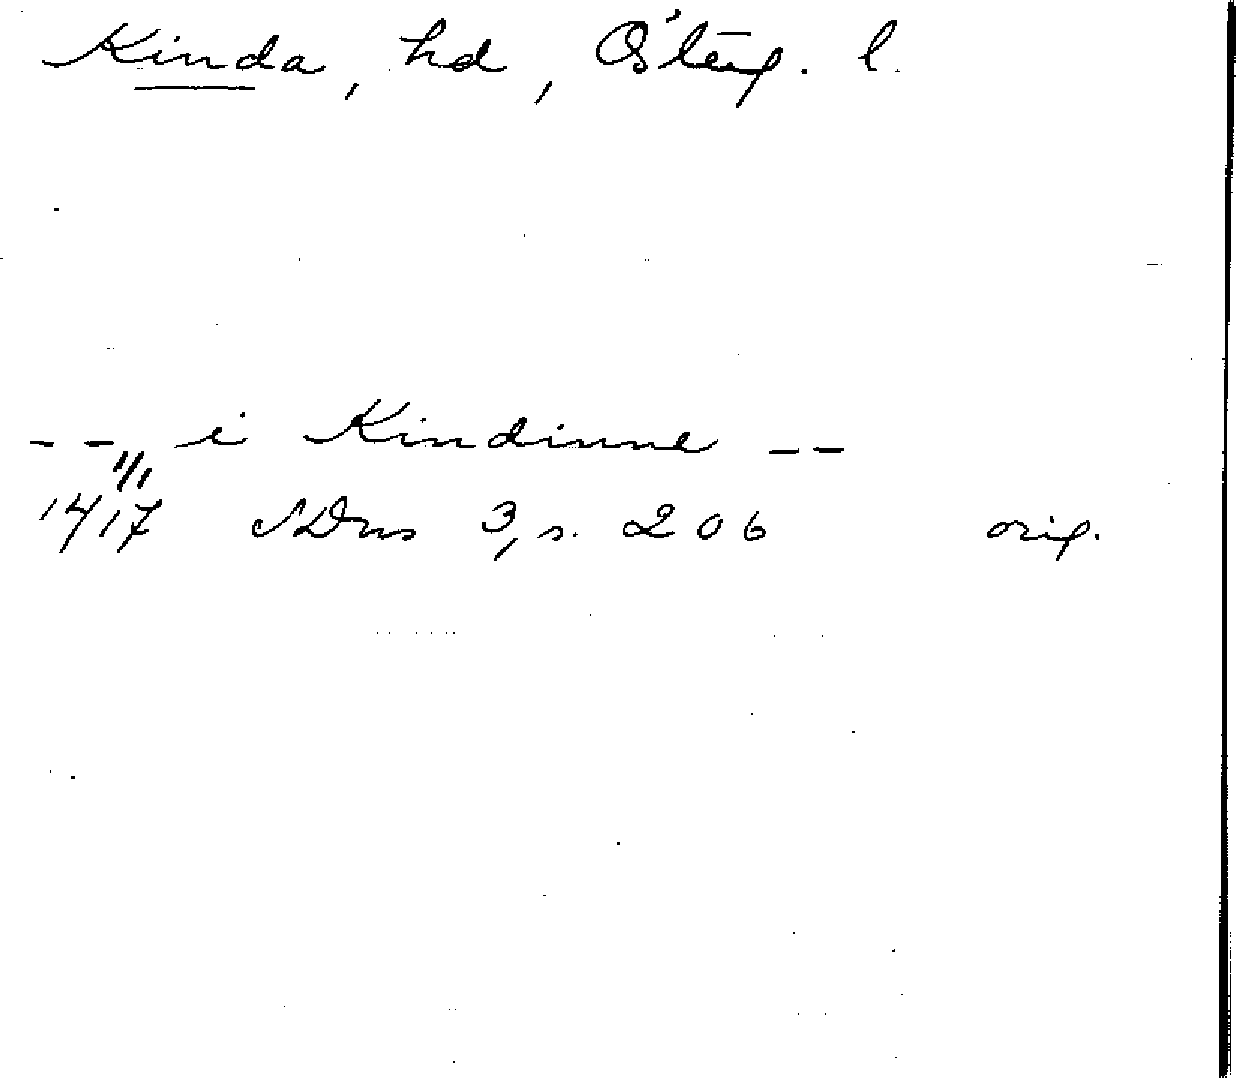 Kinda, hd, Österg. l.
-- i Kindinne --
1/1
1417 SDns 3, s. 206 orig.